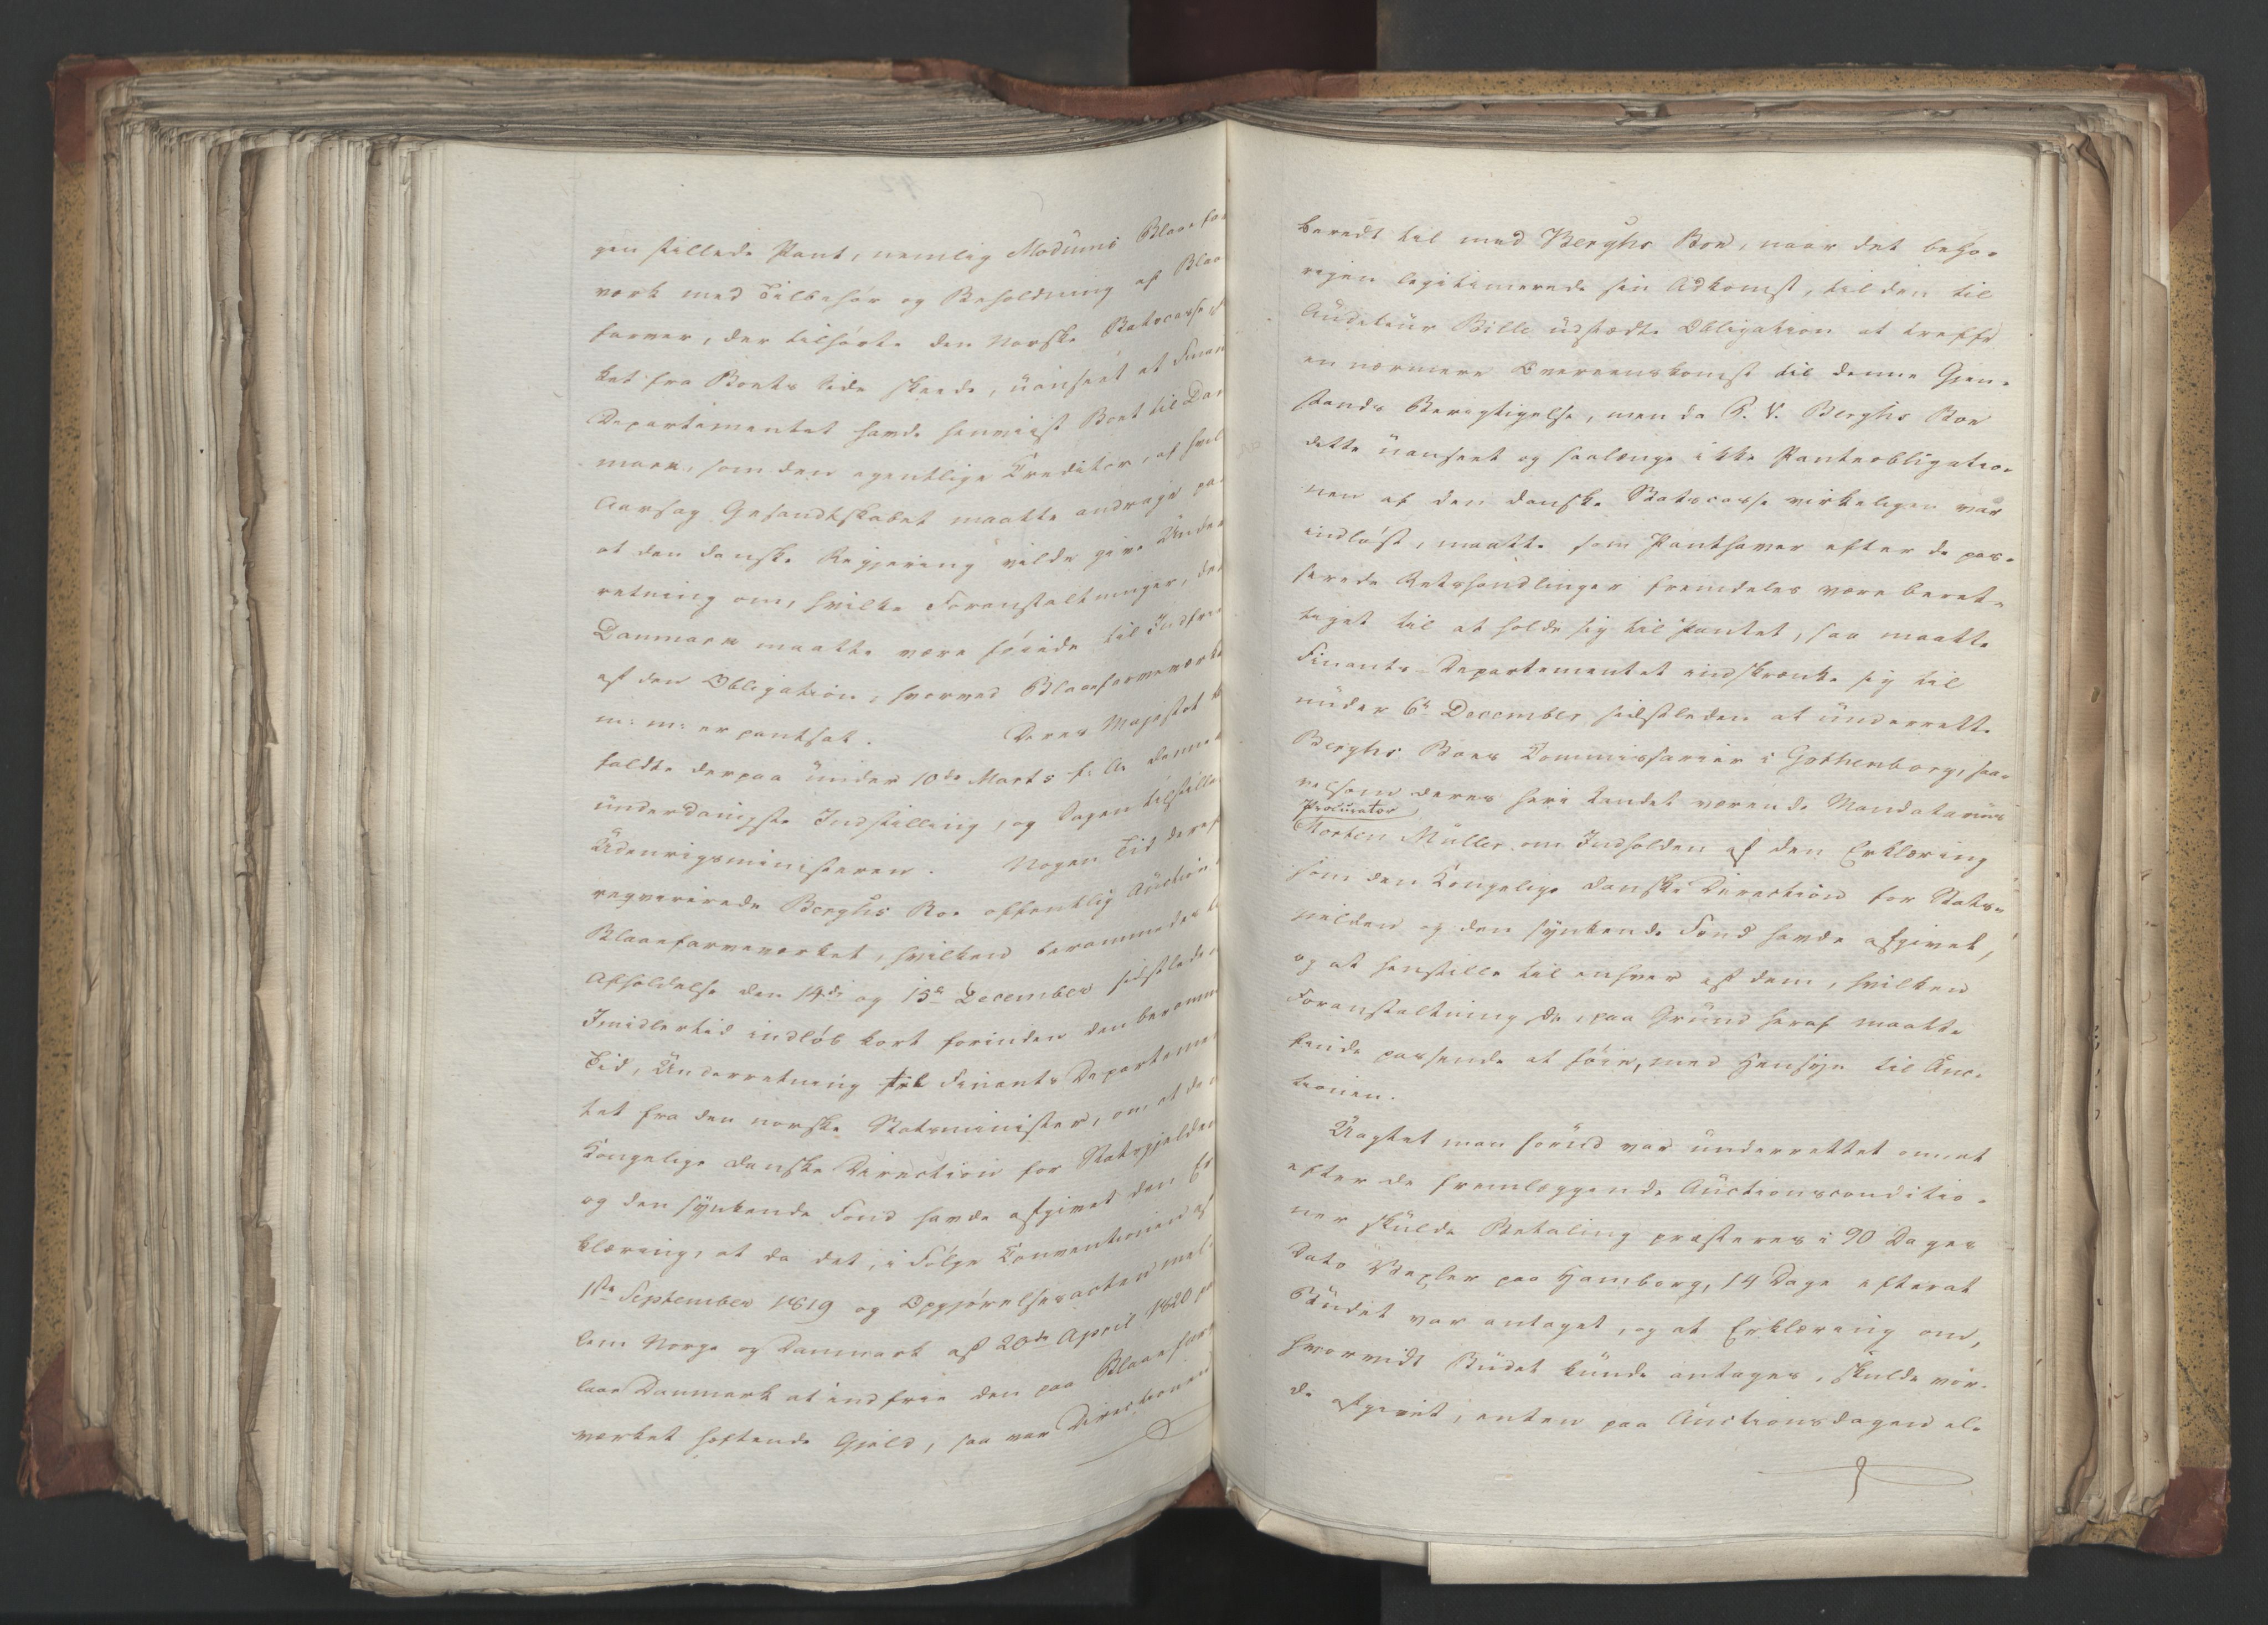 gen stillede Pant, nemlig Modums Blaaefar
værk med Tilbehør og Beholdning af Blaa
farver, der tilhørte den Norske Statscasse,
ket fra Boets Side skeede, uanseet at Finan
Departementet havde henviist Boet til Dan
mark, som den egentlige Creditor, af hvil
Aarsag Gesandtskabet maatte andrage paa
at den danske Regjering vilde give Under
retning om, hvilke Foranstaltninger, der
Danmark maatte være føiede til Indfri
af den Obligation, hvorved Blaaefarveværket
m: m: er pantsat. Deres Majestæt
faldte derpaa under 10de Marts f: A: denne
underdanigste Indstilling, og Sagen tilstille
Udenrigsministeren. Nogen Tid deref
reqvirerede Berghs Boe offentlig Auction
Blaaefarveværket, hvilken berammedes t
Afholdelse den 14de og 15de December sidstleden
Imidlertid indløb kort forinden den beramme
Tid, Underretning til Finants Departemen
tet fra den norske Statsminister, om at den
Kongelige danske Direction for Statsgjelden
og den synkende Fond havde afgivet den Er
klæring, at da det, i Følge Conventionen af
1ste September 1819 og Opgjørelsesacten mel
lem Norge og Danmark af 20de April 1820 paa
laae Danmark at indfrie den paa Blaaefarve
værket heftende Gjeld, saa var Directionen
beredt til med Berghs Boe, naar det behø-
rigen legitimerede sin Adkomst, til den til
Auditeur Bille udstædte Obligation at treffe
en nærmere Overeenskomst til denne Gjen-
stands Berigtigelse, men da P. V. Berghs Boe
dette uanseet og saalænge ikke Panteobligatio-
nen af den danske Statscasse virkeligen var
indløst, maatte som Panthaver efter de pas-
serede Retshandlinger fremdeles være beret-
tiget til at holde sig til Pantet, saa maatte
Finants-Departementet indskrænke sig til
under 6te December sidstleden at underrette
Berghs Boes Commissarier i Gothenborg, saa-
velsom deres heri Landet værende Mandatarius
Procurator
Morten Müller om Indholden af den Erklæring
som den Kongelige danske Direction for Stats-
gjelden og den synkende Fond havde afgivet,
og at henstille til enhver af dem, hvilken
Foranstaltning de, paa Grund heraf maatte
finde passende at føie, med Hensyn til Auc-
tionen.
Uagtet man forud var underrettet om, at
efter de fremlæggende Auctionsconditio-
ner skulde Betaling præsteres i 90 Dages
Dato Vexler paa Hamborg, 14 Dage efterat
Budet var antaget, og at Erklæring om,
hvorvidt Budet kunde antages, skulde vor-
de afgivet, enten paa Auctionsdagen el-